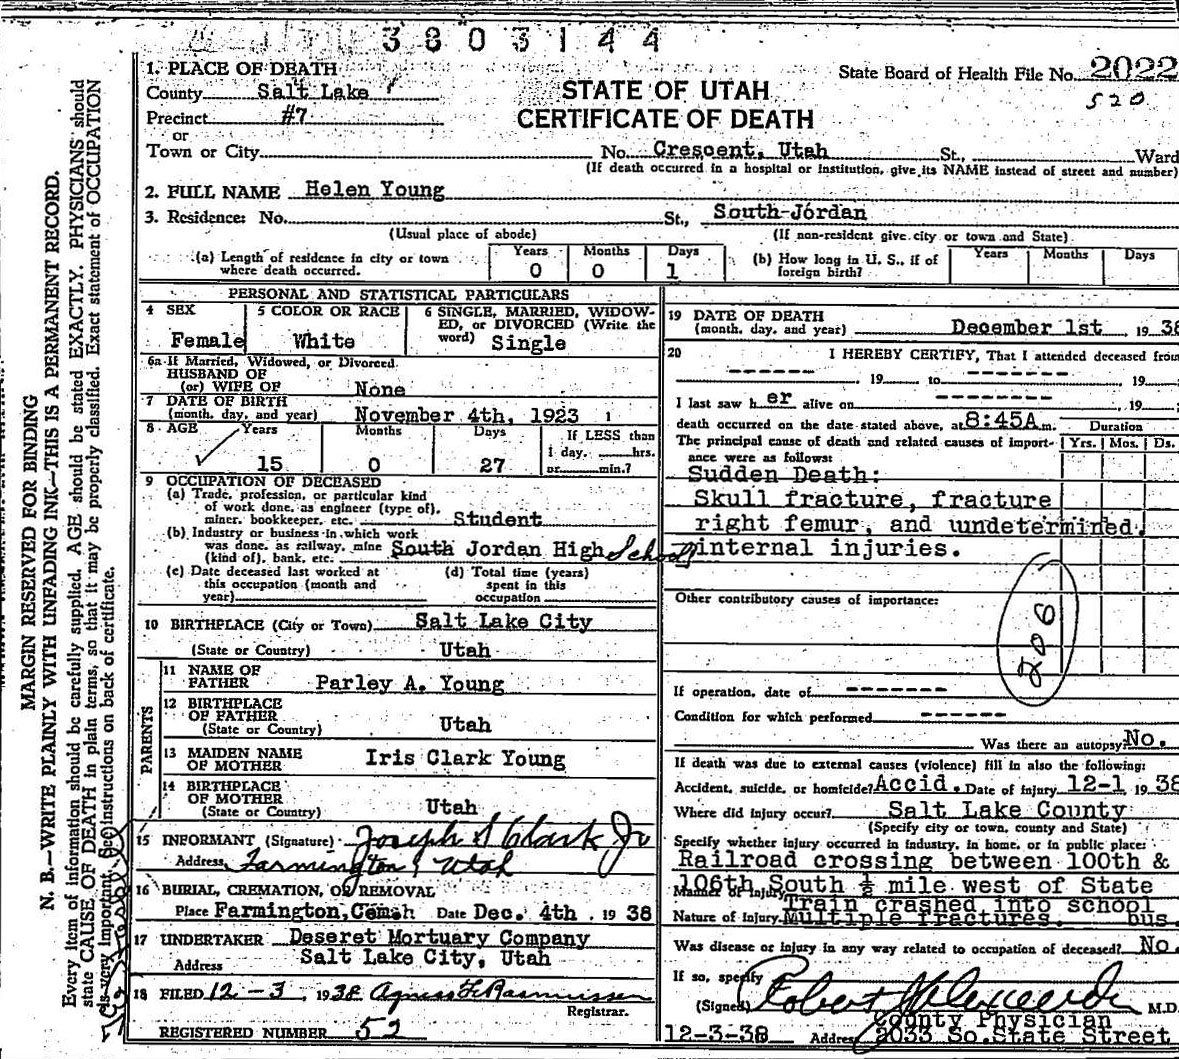 3803144
1. PLACE OF DEATH
County Salt Lake
Precinct #7
or
Town or City
STATE OF UTAH
CERTIFICATE OF DEATH
State Board of Health File No. 2022
520
No. Crescent, Utah St., Ward
(If death occurred in a hospital or institution, give its NAME instead of street and number)
2. FULL NAME Helen Young
3. Residence: No. St., South Jordan
(Usual place of abode) (If non-resident give city or town and State)
(a) Length of residence in city or town where death occurred. Years 0 Months 0 Days 1
(b) How long in U. S., if of foreign birth? Years Months Days
PERSONAL AND STATISTICAL PARTICULARS
4 SEX Female
5 COLOR OR RACE White
6 SINGLE, MARRIED, WIDOWED, or DIVORCED (Write the word) Single
6a If Married, Widowed, or Divorced
HUSBAND OF
(or) WIFE OF None
7 DATE OF BIRTH
(month, day, and year) November 4th, 1923
8 AGE Years Months Days If LESS than
1 day, hrs.
15 0 27 or min.?
9 OCCUPATION OF DECEASED
(a) Trade, profession, or particular kind
of work done, as engineer (type of),
miner, bookkeeper, etc. Student
(b) Industry or business in which work
was done, as railway, mine
(kind of), bank, etc. South Jordan High School
(c) Date deceased last worked at
this occupation (month and
year)
(d) Total time (years)
spent in this
occupation
10 BIRTHPLACE (City or Town) Salt Lake City
(State or Country) Utah
PARENTS
11 NAME OF
FATHER Parley A. Young
12 BIRTHPLACE
OF FATHER
(State or Country) Utah
13 MAIDEN NAME
OF MOTHER Iris Clark Young
14 BIRTHPLACE
OF MOTHER
(State or Country) Utah
15 INFORMANT (Signature) Joseph S Clark Jr
Address Farmington Utah
16 BURIAL, CREMATION, OR REMOVAL
Place Farmington, Date Dec. 4th. 1938
17 UNDERTAKER Deseret Mortuary Company
Address Salt Lake City, Utah
18 FILED 12-3, 1938 Agness Rasmussen
Registrar.
REGISTERED NUMBER 52
19 DATE OF DEATH
(month, day, and year) December 1st 1938
20 I HEREBY CERTIFY, That I attended deceased from
------- , 19 to -------- , 19
I last saw her alive on --------- , 19
death occurred on the date stated above, at 8:45A m. Duration
The principal cause of death and related causes of importance were as follows: Yrs. Mos. Ds.
Sudden Death:
Skull fracture, fracture
right femur, and undetermined
internal injuries.
Other contributory causes of importance:
206
If operation, date of -------
Condition for which performed ------
Was there an autopsy? No.
If death was due to external causes (violence) fill in also the following:
Accident, suicide, or homicide? Accid. Date of injury 12-1 1938
Where did injury occur? Salt Lake County
(Specify city or town, county and State)
Specify whether injury occurred in industry, in home, or in public place:
Railroad crossing between 100th &
106th South ½ mile west of State
Manner of injury Train crashed into school bus.
Nature of injury Multiple fractures.
Was disease or injury in any way related to occupation of deceased? No.
If so, specify
(Signed) Robert M.D.
County Physician
12-3-38 Address 2033 So. State Street
MARGIN RESERVED FOR BINDING
N. B.—WRITE PLAINLY WITH UNFADING INK—THIS IS A PERMANENT RECORD.
Every item of information should be carefully supplied. AGE should be stated EXACTLY. PHYSICIANS should
state CAUSE OF DEATH in plain terms, so that it may be properly classified. Exact statement of OCCUPATION
is very important. See instructions on back of certificate.